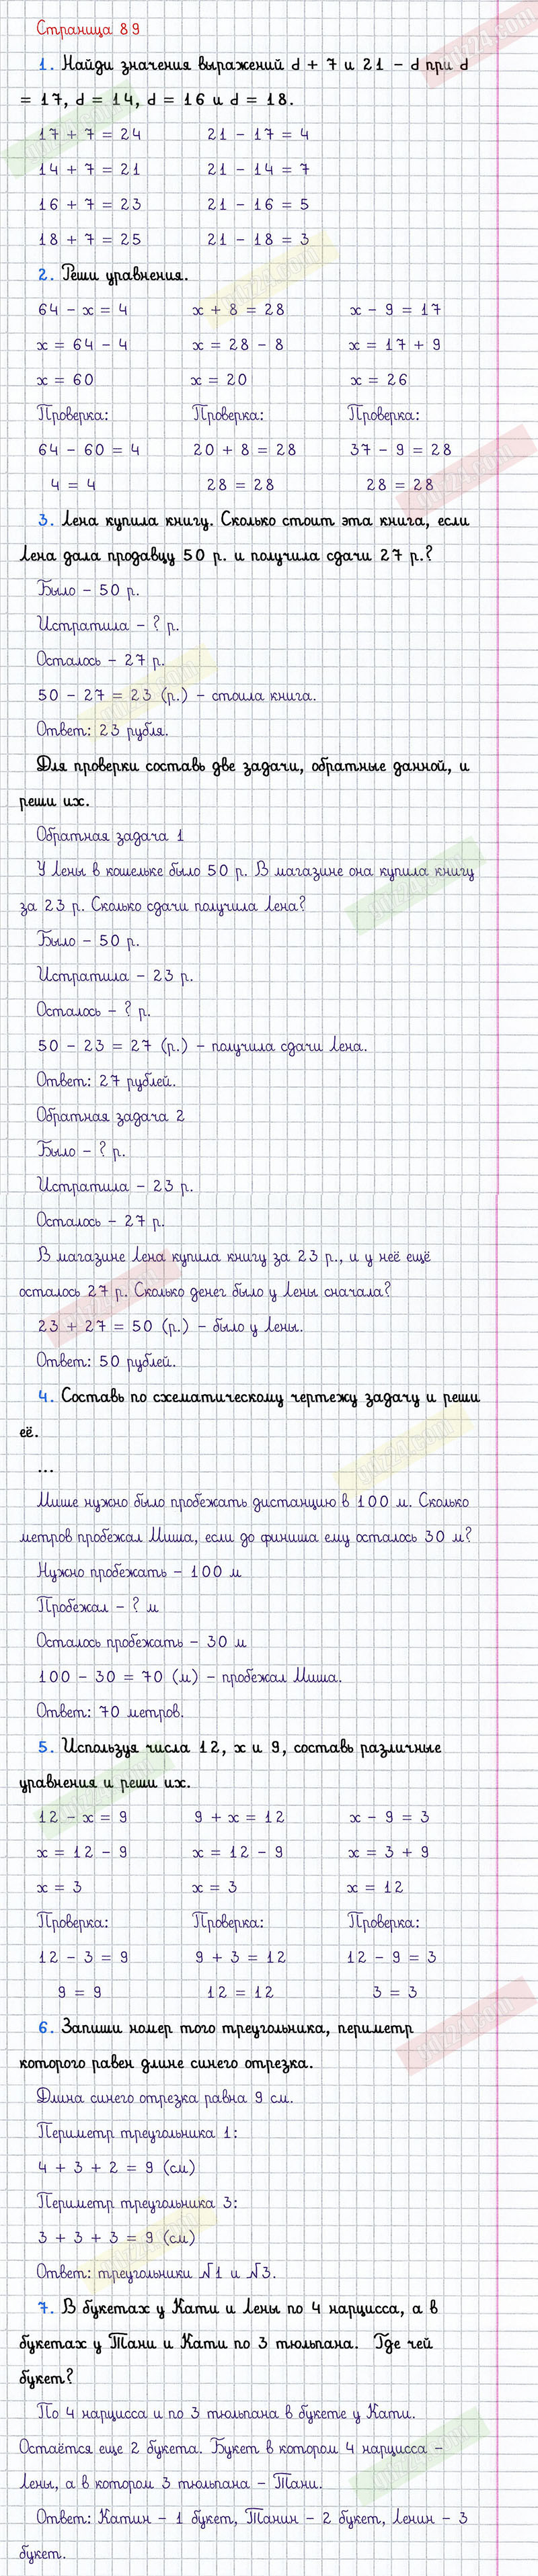 Страница 89
1. Найди значения выражений d + 7 и 21 - d при d
= 17, d = 14, d = 16 и d = 18.
17 + 7 = 24 21 - 17 = 4
14 + 7 = 21 21 - 14 = 7
16 + 7 = 23 21 - 16 = 5
18 + 7 = 25 21 - 18 = 3
2. Реши уравнения.
64 - x = 4 x + 8 = 28 x - 9 = 17
x = 64 - 4 x = 28 - 8 x = 17 + 9
x = 60 x = 20 x = 26
Проверка: Проверка: Проверка:
64 - 60 = 4 20 + 8 = 28 37 - 9 = 28
4 = 4 28 = 28 28 = 28
3. Лена купила книгу. Сколько стоит эта книга, если
Лена дала продавцу 50 р. и получила сдачи 27 р.?
Было - 50 р.
Истратила - ? р.
Осталось - 27 р.
50 - 27 = 23 (р.) - стоила книга.
Ответ: 23 рубля.
Для проверки составь две задачи, обратные данной, и
реши их.
Обратная задача 1
У Лены в кошельке было 50 р. В магазине она купила книгу
за 23 р. Сколько сдачи получила Лена?
Было - 50 р.
Истратила - 23 р.
Осталось - ? р.
50 - 23 = 27 (р.) - получила сдачи Лена.
Ответ: 27 рублей.
Обратная задача 2
Было - ? р.
Истратила - 23 р.
Осталось - 27 р.
В магазине Лена купила книгу за 23 р., и у неё ещё
осталось 27 р. Сколько денег было у Лены сначала?
23 + 27 = 50 (р.) - было у Лены.
Ответ: 50 рублей.
4. Составь по схематическому чертежу задачу и реши
её.
...
Мише нужно было пробежать дистанцию в 100 м. Сколько
метров пробежал Миша, если до финиша ему осталось 30 м?
Нужно пробежать - 100 м
Пробежал - ? м
Осталось пробежать - 30 м
100 - 30 = 70 (м) - пробежал Миша.
Ответ: 70 метров.
5. Используя числа 12, x и 9, составь различные
уравнения и реши их.
12 - x = 9 9 + x = 12 x - 9 = 3
x = 12 - 9 x = 12 - 9 x = 3 + 9
x = 3 x = 3 x = 12
Проверка: Проверка: Проверка:
12 - 3 = 9 9 + 3 = 12 12 - 9 = 3
9 = 9 12 = 12 3 = 3
6. Запиши номер того треугольника, периметр
которого равен длине синего отрезка.
Длина синего отрезка равна 9 см.
Периметр треугольника 1:
4 + 3 + 2 = 9 (см)
Периметр треугольника 3:
3 + 3 + 3 = 9 (см)
Ответ: треугольники №1 и №3.
7. В букетах у Кати и Лены по 4 нарцисса, а в
букетах у Тани и Кати по 3 тюльпана. Где чей
букет?
По 4 нарцисса и по 3 тюльпана в букете у Кати.
Остаётся еще 2 букета. Букет в котором 4 нарцисса -
Лены, а в котором 3 тюльпана - Тани.
Ответ: Катин - 1 букет, Танин - 2 букет, Ленин - 3
букет.